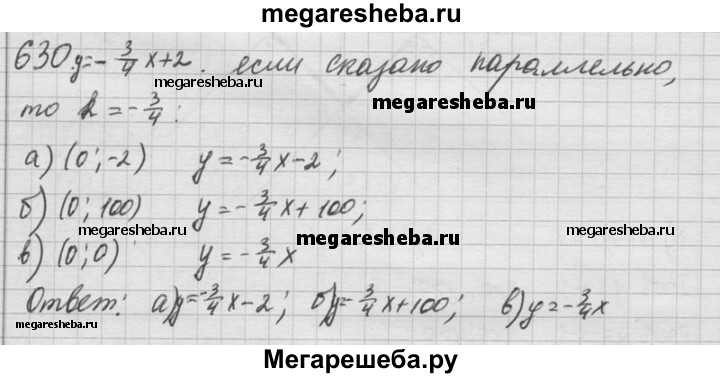 megaresheba.ru
630. y = -3/4 x + 2. если сказано параллельно,
megaresheba.ru
megaresheba.ru
то k = -3/4:
а) (0; -2) y = -3/4 x - 2;
б) (0; 100) y = -3/4 x + 100;
megaresheba.ru
megaresheba.ru
megaresheba.ru
в) (0; 0) y = -3/4 x
Ответ: а) y = -3/4 x - 2; б) y = -3/4 x + 100; в) y = -3/4 x
megaresheba.ru
Мегарешеба.ру